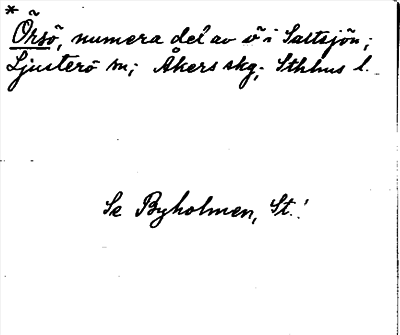 * Örsö, numera del av ö i Saltsjön;
Ljusterö sn; Åkers skg. Sthlms l.
Se Byholmen, St.!